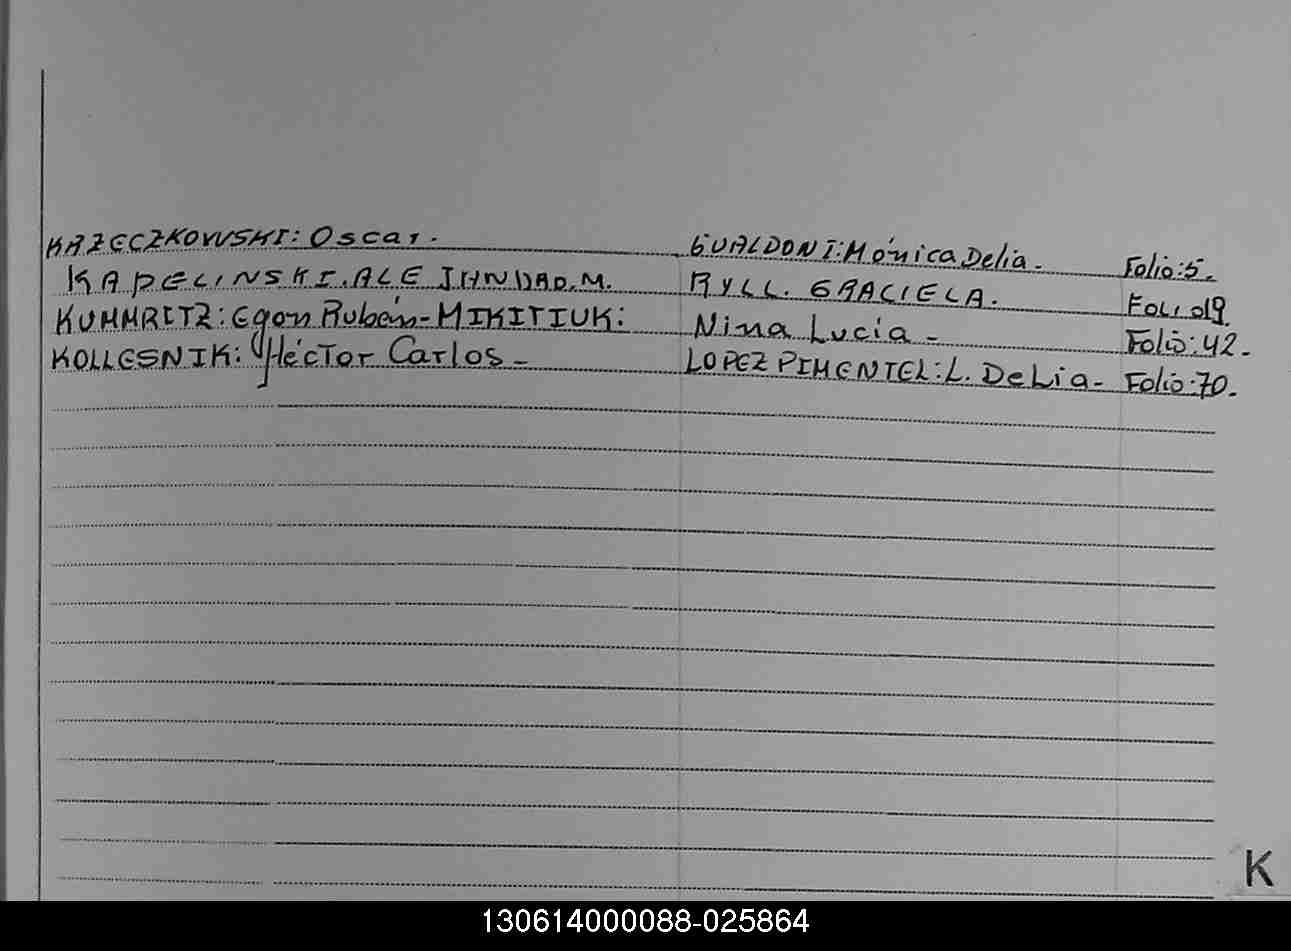 KRZECZKOWSKI: Oscar. GUALDONI: Mónica Delia. Folio: 5.
KAPELINSKI. ALEJANDRO. M. RYLL. GRACIELA. FOLIO 19.
KUMMRITZ: Egon Rubén - MIKITIUK: Nina Lucía - Folio: 42.
KOLLESNIK: Héctor Carlos - LOPEZ PIMENTEL: L. Delia - Folio: 70.
K
130614000088-025864